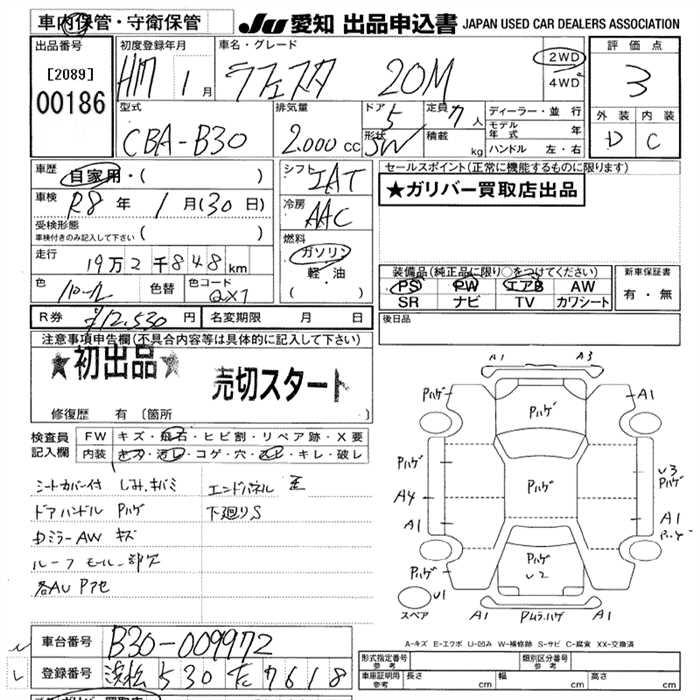 車内保管・守衛保管
JU 愛知 出品申込書 JAPAN USED CAR DEALERS ASSOCIATION
出品番号 初度登録年月 車名・グレード 評価点
[2089] 00186 H17 1月 ラフェスタ 20M 2WD 4WD 3
型式 排気量 ドア 定員 ディーラー・並行 外装 内装
CBA-B30 2.000 cc 5 7人 モデル年式 年 D C
形状 SW 積載 kg ハンドル 左・右
車歴 自家用・( ) シフト IAT セールスポイント(正常に機能するものに限ります)
車検 R8年 1月(30日) 冷房 AAC ★ガリバー買取店出品
受検形態 車検付きのみ記入して下さい ( )
燃料 ガソリン 軽・油 ( )
走行 19万2千848km 装備品(純正品に限り○をつけてください) 新車保証書
色 パール 色替 色コード QX1 PS PW エアB AW 有・無
SR ナビ TV カワシート
R券 ¥12,530円 名変期限 月 日 後日品
注意事項申告欄(不具合内容等は具体的に記入して下さい)
★初出品★
売切スタート
修復歴 有 (箇所
検査員記入欄 FW キズ・飛石・ヒビ割・リペア跡・X要
内装 キズ・汚レ・コゲ・穴・スレ・キレ・破レ
シートカバー付 しみ.キバミ エンドパネル歪
ドアハンドル Pハゲ 下廻りS
ドミラーAW キズ
ルーフモール一部欠
各AU Pアセ
A1 A3
Pハゲ Pハゲ A1
Pハゲ Pハゲ U3
A4
A1 A1 Pハゲ
Pハゲ U2 Pハゲ
U1
スペア A1 Pムラハゲ A1
A-キズ E-エクボ U-凹み W-補修跡 S-サビ C-腐食 XX-交換済
車台番号 B30-009972
登録番号 浜松 530 た 7618
形式指定番号 参考 類別区分番号 参考
車庫証明用 参考 長さ cm 幅 cm 高さ cm